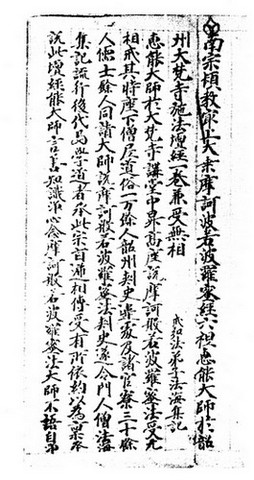 南宗頓教最上大乘摩訶般若波羅蜜經六祖惠能大師於韶
州大梵寺施法壇經一卷兼受無相
戒弘法弟子法海集記
惠能大師於大梵寺講堂中昇高座說摩訶般若波羅蜜法受无
相戒其時座下僧尼道俗一万餘人韶州刺史等及諸官寮三十餘
人儒士餘人同請大師說摩訶般若波羅蜜法刺史遂令門人僧法海
集記流行後代與學道者承此宗旨遞相傳受有所依約以為稟承
說此壇經能大師言善知識淨心念摩訶般若波羅蜜法大師不語自